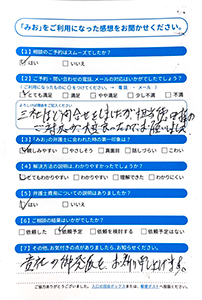 「みお」をご利用になった感想をお聞かせください。
【1】相談のご予約はスムーズでしたか？
はい いいえ
【2】ご予約・問い合わせの電話、メールの対応はいかがでしたでしょうか？
とても満足 満足 やや満足 少し不満 不満
三社ほど問合せをしましたが担当
ご対応が大変良かったのでお願いしました
【3】相談時の弁護士に会われた時の第一印象は？
親しみやすい やさしそう 真面目 話しづらい こわい
【4】解決方法の説明は、わかりやすかったでしょうか？
とてもわかりやすい わかりやすい わかりにくい 理解できない
【5】弁護士費用についての説明はありましたか？
はい いいえ
【6】ご相談の結果はいかがでしたか？
依頼した 依頼予定 依頼を検討する 依頼予定はない
【7】その他、お気付きの点がありましたら、お知らせください。
貴社の御発展をお祈り申し上げます。
ご協力ありがとうございました。